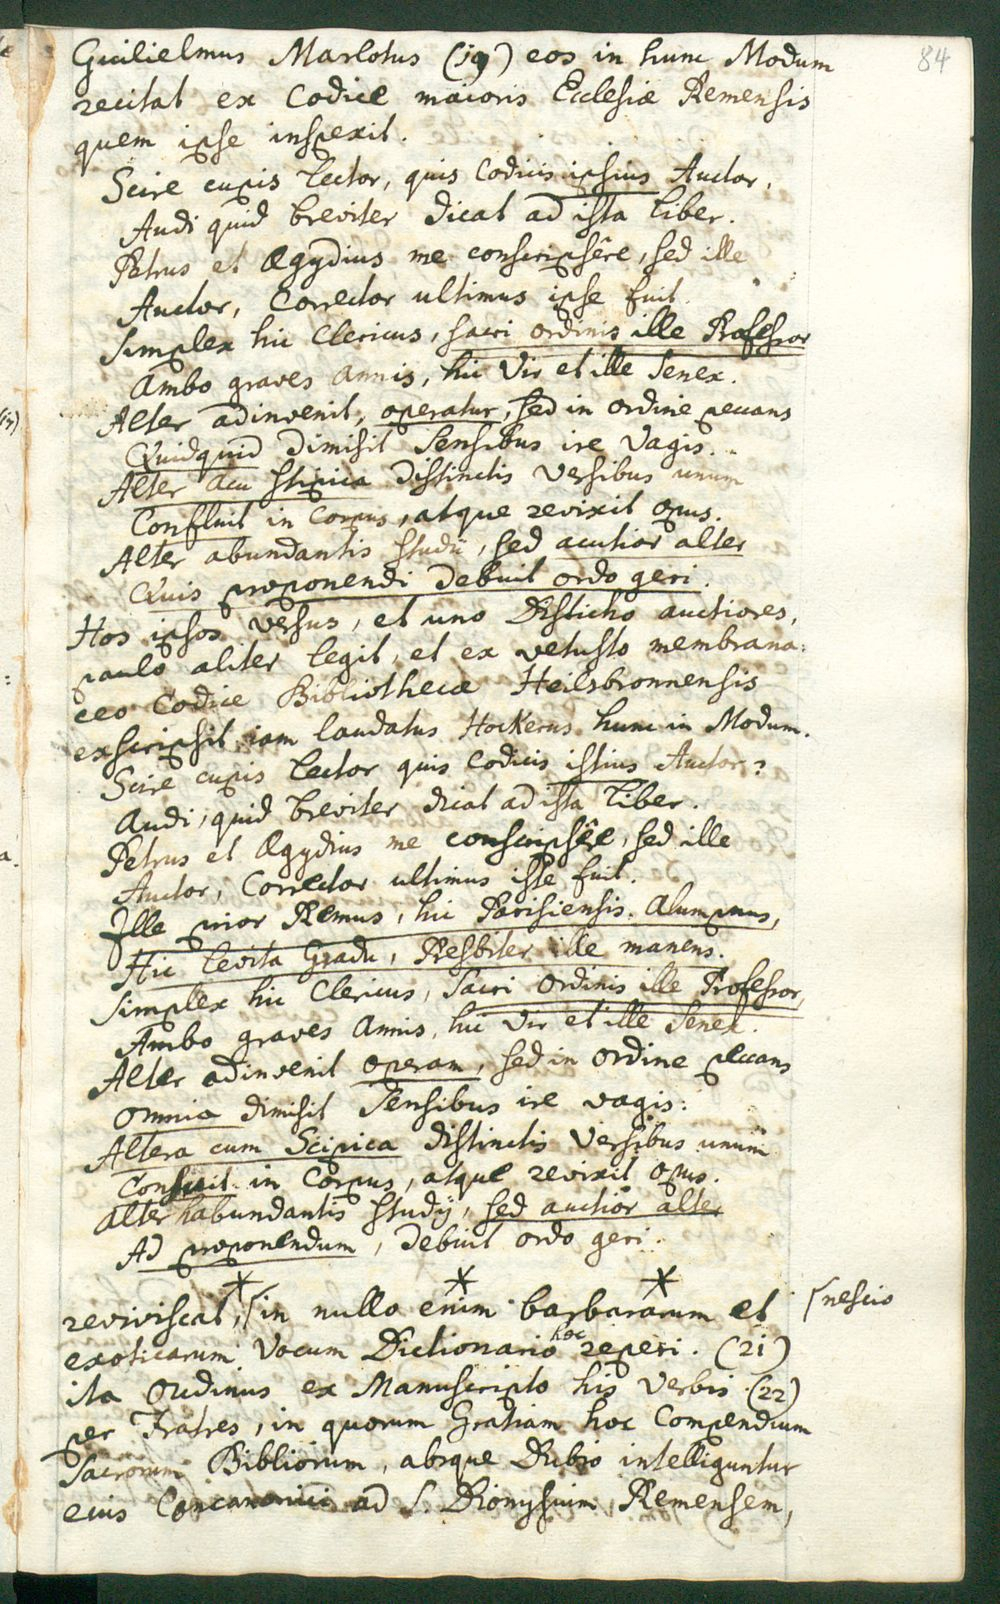 84
Guilielmus Marlotus (19) eos in hunc Modum
recitat ex Codice maioris Ecclesiæ Remensis
quem ipse inspexit.
Scire cupis Lector, quis Codicis ipsius Auctor,
Audi quid breviter dicat ad ista Liber.
Petrus et Ægydius me conscripsêre, sed ille
Auctor, Corrector ultimus ipse fuit.
Simplex hic Clericus, sacri ordinis ille Professor
Ambo graves Annis, hic Vir et ille Senex.
Alter adinvenit, operatur, sed in ordine peccans
Quidquid dimisit Sensibus ire Vagis.
Alter acu stipica distinctis versibus unum
Confluit in Corpus, atque revixit opus.
Alter abundantis studii, sed acutior alter
Quis proponendi debuit ordo geri.
Hos ipsos versus, et uno Disticho auctiores,
paulo aliter legit, et ex vetusto membrana:
ceo Codice Bibliothecæ Heilsbronnensis
exscripsit iam laudatus Hockerus hunc in Modum.
Scire cupis Lector quis Codicis istius Auctor?
Audi, quid breviter dicat ad ista Liber.
Petrus et Ægydius me conscripsêre, sed ille
Auctor, Corrector ultimus iste fuit.
Ille prior Remus, hic Parisiensis. Alumpnus,
Hic Levita Gradu, Presbiter ille manens.
Simplex hic Clericus, Sacri Ordinis ille Professor,
Ambo graves Annis, hic Vir et ille Senex.
Alter adinvenit operam, sed in ordine peccans
Omnia dimisit Sensibus ire vagis:
Altera cum Scipica distinctis Versibus unum
Consuit in Corpus, atque revixit opus.
Alter habundantis studij, sed auctior alter
Ad proponendum, Debuit ordo geri.
* * *
reviviscat, ⌈in nullo enim barbararum et ⌈nescio
exoticarum Vocum Dictionario hoc reperi. (21)
ita Oudinus ex Manuscripto his Verbis (22)
per Fratres, in quorum Gratiam hoc Compendium
Sacrorum Bibliorum, absque Dubio intelliguntur
eius Concanonici ad S. Dionysium Remensem,